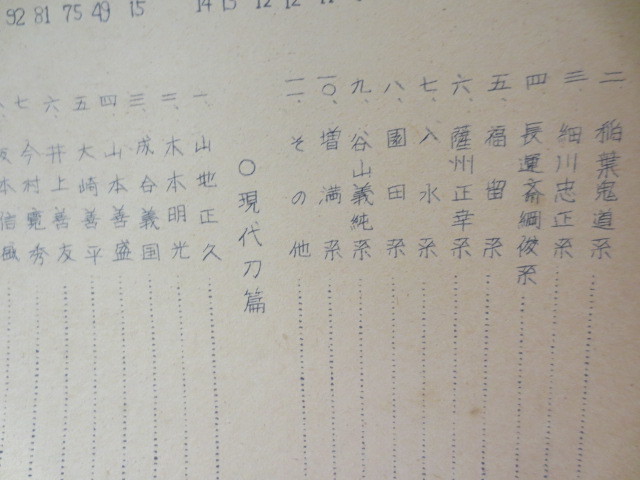 二、稲葉鬼道系
三、細川忠正系
四、長運斎綱俊系
五、福留系
六、薩州正幸系
七、入水系
八、園田系
九、谷山義純系
一〇、増満系
一一、その他
〇現代刀篇
一、山地正久
二、木本明光
三、成合義国
四、山本善盛
五、大崎善平
六、井上善友
七、今村寛秀
15
49
75
81
92